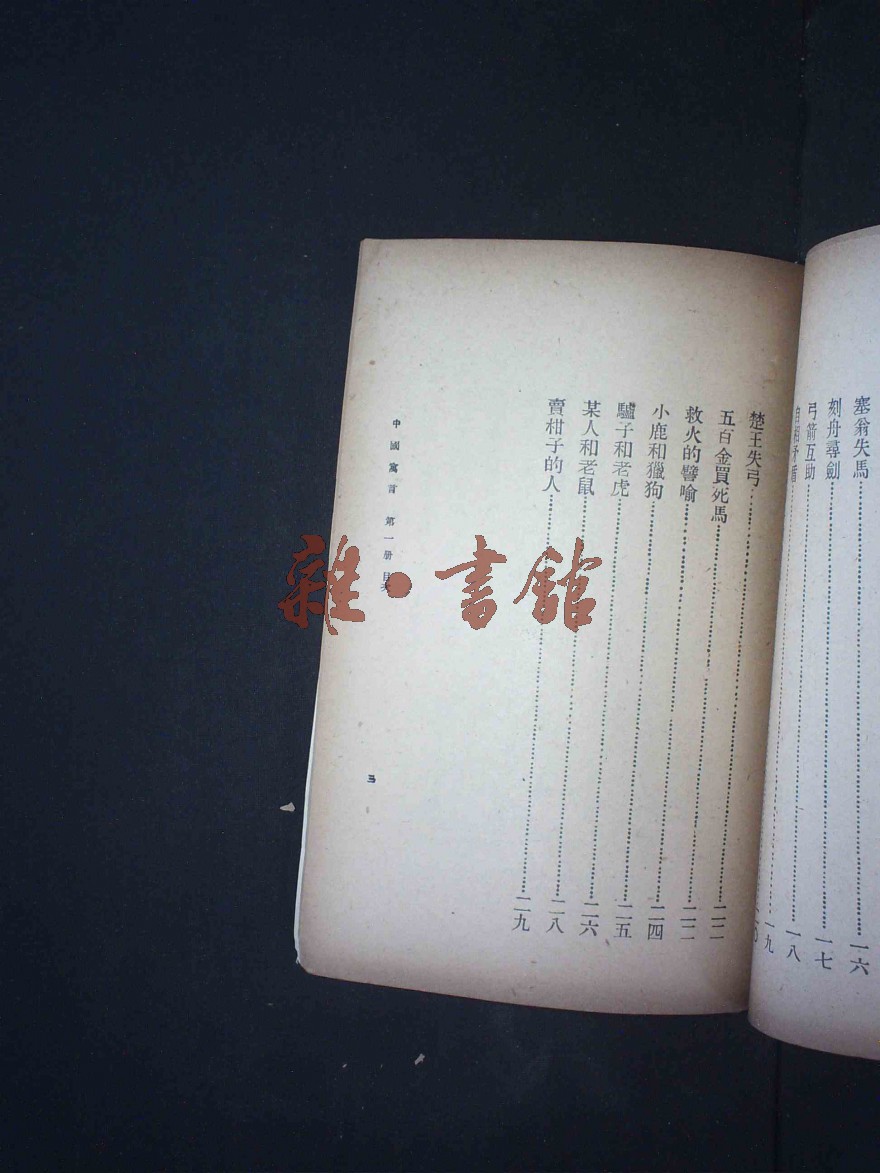 塞翁失馬……一六
刻舟尋劍……一七
弓箭互助……一八
自相矛盾……一九
楚王失弓……二二
五百金買死馬……二二
救火的譬喻……二四
小鹿和獵狗……二五
驢子和老虎……二六
某人和老鼠……二八
賣柑子的人……二九
中國寓言 第一册 目次
三
雜·書館